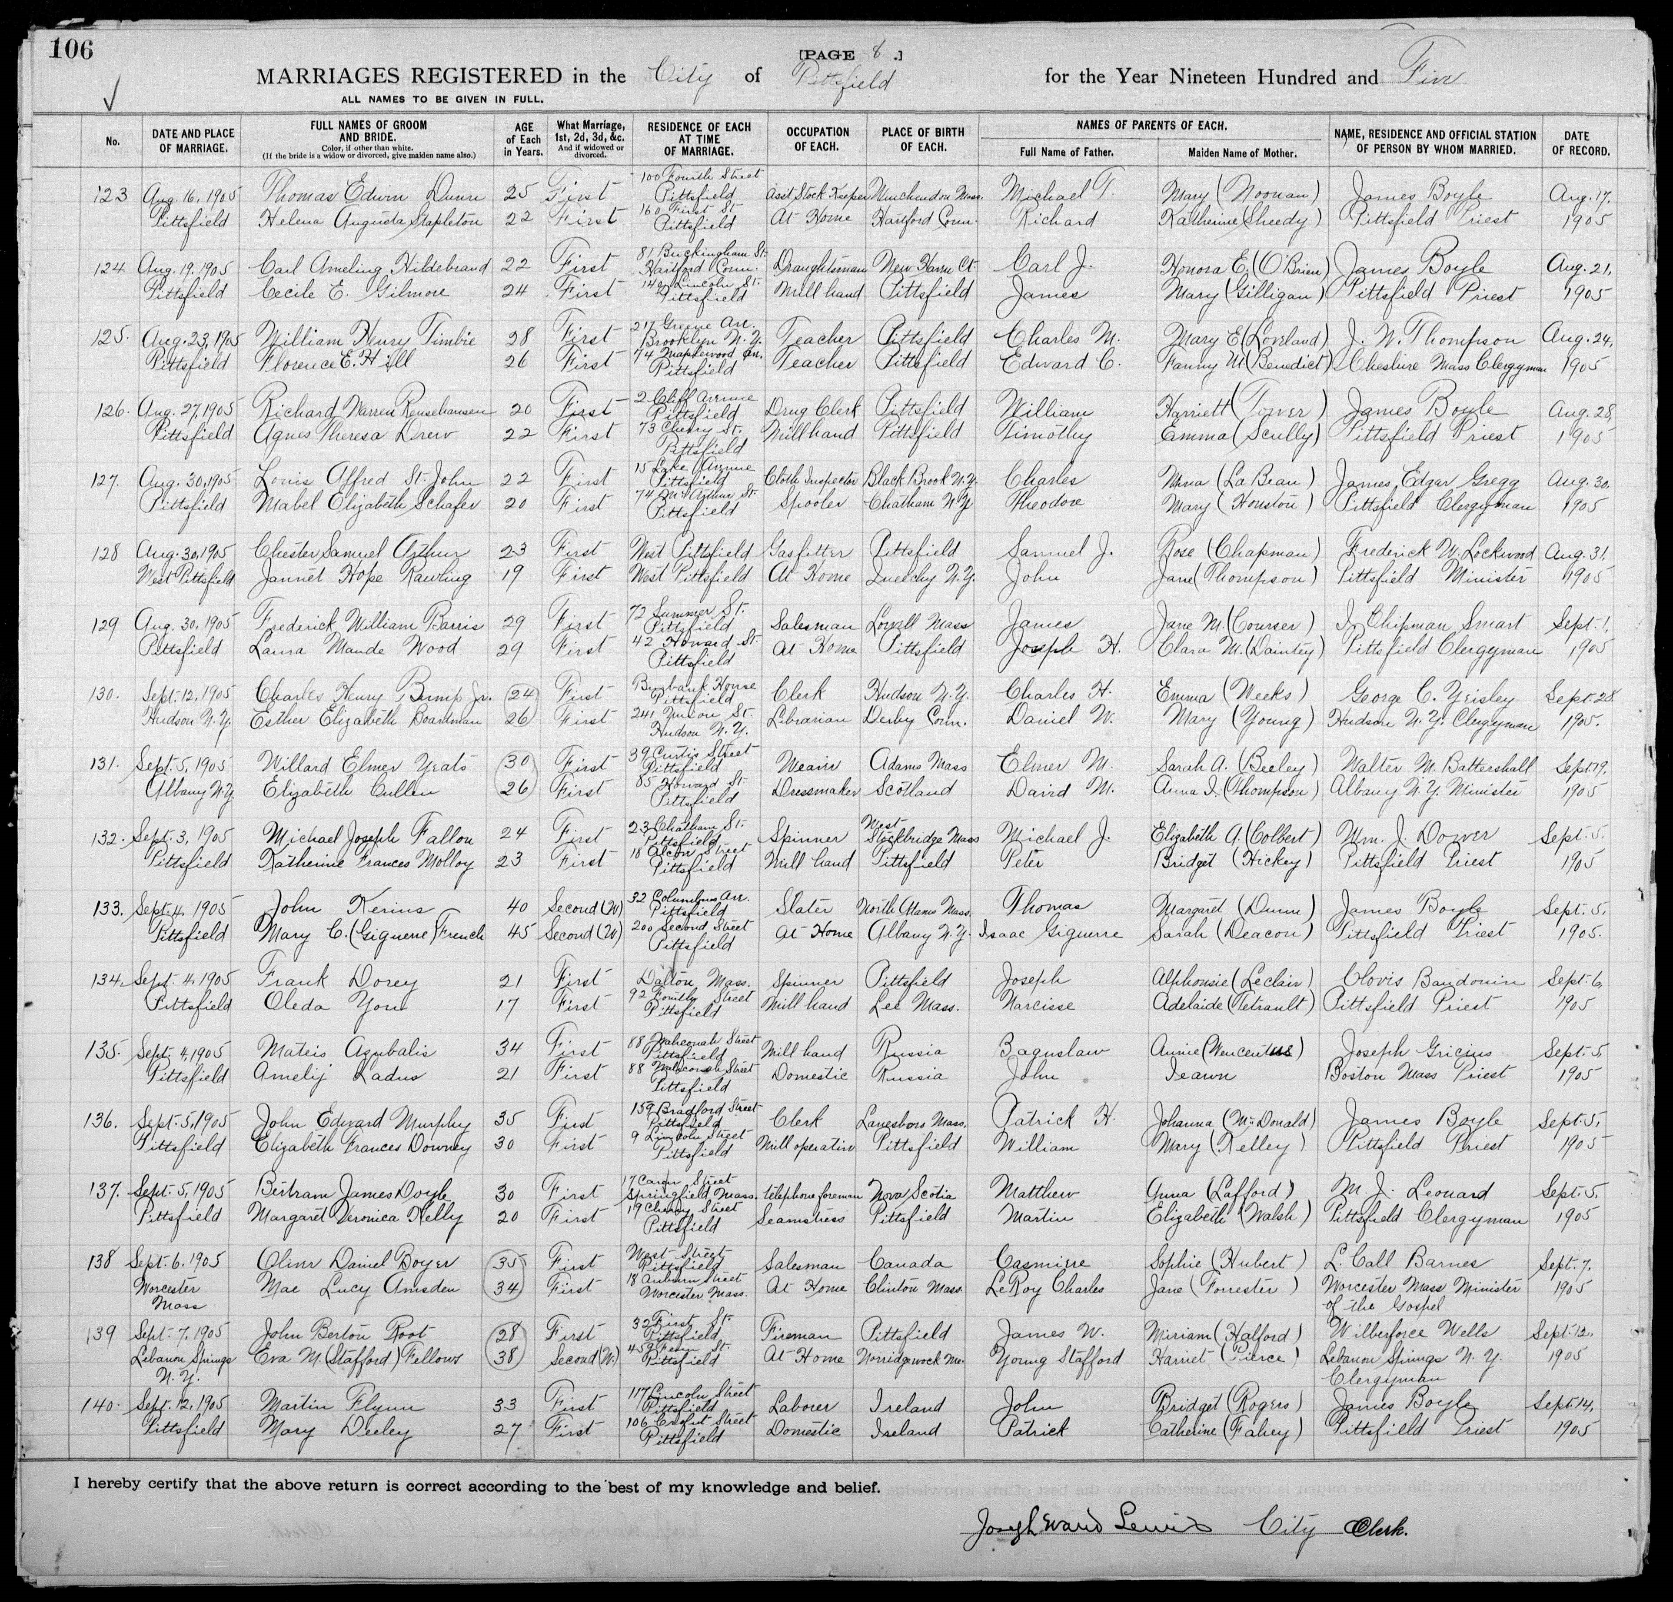 106
[PAGE 8.]
MARRIAGES REGISTERED in the City of Pittsfield for the Year Nineteen Hundred and Five
ALL NAMES TO BE GIVEN IN FULL.
No. DATE AND PLACE OF MARRIAGE. FULL NAMES OF GROOM AND BRIDE. Color, if other than white. (If the bride is a widow or divorced, give maiden name also.) AGE of Each in Years. What Marriage, 1st, 2d, 3d, &c. And if widowed or divorced. RESIDENCE OF EACH AT TIME OF MARRIAGE. OCCUPATION OF EACH. PLACE OF BIRTH OF EACH. NAMES OF PARENTS OF EACH. Full Name of Father. Maiden Name of Mother. NAME, RESIDENCE AND OFFICIAL STATION OF PERSON BY WHOM MARRIED. DATE OF RECORD.
123 Aug. 16, 1905 Thomas Edwin Dunn 25 First 100 Fourth Street Pittsfield Asst Stock Keeper Winchendon Mass. Michael T. Mary (Noonan) James Boyle Aug. 17.
Pittsfield Helena Augusta Stapleton 22 First 160 First St. Pittsfield At Home Hartford Conn. Richard Katherine (Sheedy) Pittsfield Priest 1905
124 Aug. 19, 1905 Carl Ameling Hildebrand 22 First 81 Buckingham St. Hartford Conn. Draughtsman New Haven Ct. Carl J. Honora E. (O'Brien) James Boyle Aug. 21,
Pittsfield Cecile E. Gilmore 24 First 142 Lincoln St. Pittsfield Mill hand Pittsfield James Mary (Gilligan) Pittsfield Priest 1905
125. Aug. 23, 1905 William Henry Timbie 28 First 217 Greene Av. Brooklyn N.Y. Teacher Pittsfield Charles M. Mary E. (Loveland) J. W. Thompson Aug. 24,
Pittsfield Florence E. Hill 26 First 74 Maplewood Av. Pittsfield Teacher Pittsfield Edward C. Fanny M. (Benedict) Cheshire Mass Clergyman 1905
126. Aug. 27, 1905 Richard Warren Rensehausen 20 First 2 Cliff Avenue Pittsfield Drug Clerk Pittsfield William Harriett (Tower) James Boyle Aug. 28,
Pittsfield Agnes Theresa Drew 22 First 73 Cherry St. Pittsfield Mill hand Pittsfield Timothy Emma (Scully) Pittsfield Priest 1905
127. Aug. 30, 1905 Louis Alfred St. John 22 First 15 Lake Avenue Pittsfield Cloth Inspector Black Brook N.Y. Charles (La Beau) James Edgar Gregg Aug. 30,
Pittsfield Mabel Elizabeth Schafer 20 First 74 McArthur St. Pittsfield Spooler Chatham N.Y. Theodore Mary (Houston) Pittsfield Clergyman 1905
128 Aug. 30, 1905 Chester Samuel Arthur 23 First West Pittsfield Gasfitter Pittsfield Samuel J. Rose (Chapman) Frederick W. Lockwood Aug. 31,
West Pittsfield Jannet Hope Rawling 19 First West Pittsfield At Home Quechy N.Y. John Jane (Thompson) Pittsfield Minister 1905
129 Aug. 30, 1905 Frederick William Barris 29 First 72 Summer St. Pittsfield Salesman Lowell Mass James Jane M. (Courser) I. Chipman Smart Sept. 1,
Pittsfield Laura Maude Wood 29 First 42 Howard St. Pittsfield At Home Pittsfield Joseph H. Clara M. (Daintey) Pittsfield Clergyman 1905
130. Sept. 12, 1905 Charles Henry Bump Jr. 24 First Burbank House Pittsfield Clerk Hudson N.Y. Charles H. Emma (Weeks) George C. Yeisley Sept. 28
Hudson N.Y. Esther Elizabeth Boardman 26 First 241 Union St. Hudson N.Y. Librarian Derby Conn. Daniel W. Mary (Young) Hudson N.Y. Clergyman 1905.
131. Sept. 5, 1905 Willard Elmer Yeats 30 First 39 Curtis Street Pittsfield Weaver Adams Mass Elmer M. Sarah A. (Beeley) Walter W. Battershall Sept. 19,
Albany N.Y. Elizabeth Cullen 26 First 85 Howard St. Pittsfield Dressmaker Scotland David M. Anna I. (Thompson) Albany N.Y. Minister 1905
132. Sept. 3, 1905 Michael Joseph Fallon 24 First 23 Chatham St. Pittsfield Spinner West Stockbridge Mass Michael J. Elizabeth A. (Colbert) Wm. J. Dower Sept. 5.
Pittsfield Katherine Frances Molloy 23 First 18 Alcon Street Pittsfield Mill hand Pittsfield Peter Bridget (Hickey) Pittsfield Priest 1905
133. Sept. 4, 1905 John Kerins 40 Second (W) 32 Columbus Av. Pittsfield Slater North Adams Mass. Thomas Margaret (Dunn) James Boyle Sept. 5,
Pittsfield Mary C. (Giguere) French 45 Second (W) 200 Second Street Pittsfield At Home Albany N.Y. Isaac Giguerre Sarah (Deacon) Pittsfield Priest 1905.
134. Sept. 4, 1905 Frank Dorey 21 First Dalton Mass. Spinner Pittsfield Joseph Alphonsie (Leclair) Clovis Baudouin Sept. 6,
Pittsfield Oleda Yon 17 First 92 Fourth Street Pittsfield Mill hand Lee Mass. Narcisse Adelaide (Tetrault) Pittsfield Priest 1905
135. Sept. 4, 1905 Mateis Azubalis 34 First 88 Wahconah Street Pittsfield Mill hand Russia Baguslaw Annie (Wencentus) Joseph Gricius Sept. 5
Pittsfield Amelij Ladus 21 First 88 Wahconah Street Pittsfield Domestic Russia John Boston Mass Priest 1905
136. Sept. 5, 1905 John Edward Murphy 35 First 159 Bradford Street Pittsfield Clerk Lanesboro Mass. Patrick H. Johanna (McDonald) James Boyle Sept. 5,
Pittsfield Elizabeth Frances Downey 30 First 9 Lincoln Street Pittsfield Mill operative Pittsfield William Mary (Kelley) Pittsfield Priest 1905
137. Sept. 5, 1905 Bertram James Doyle 30 First 17 Carew Street Springfield Mass. telephone foreman Nova Scotia Matthew Anna (Lafford) M. J. Leonard Sept. 5.
Pittsfield Margaret Veronica Kelly 20 First 19 Cherry Street Pittsfield Seamstress Pittsfield Martin Elizabeth (Walsh) Pittsfield Clergyman 1905
138 Sept. 6, 1905 Oliver Daniel Boyer 35 First West Street Pittsfield Salesman Canada Casmiere Sophie (Hubert) L. Call Barnes Sept. 7.
Worcester Mass Mae Lucy Amsden 34 First 18 Auburn Street Worcester Mass. At Home Clinton Mass. LeRoy Charles Jane (Forrester) Worcester Mass Minister of the Gospel 1905
139 Sept. 7, 1905 John Berton Root 28 First 32 First St. Pittsfield Fireman Pittsfield James W. Miriam (Halford) Wilberforce Wells Sept. 12,
Lebanon Springs N.Y. Eva M. (Stafford) Fellows 38 Second (W.) 459 Fenn St. Pittsfield At Home Norridgewock Me. Young Stafford Harriet (Pierce) Lebanon Springs N.Y. Clergyman 1905
140. Sept. 12, 1905 Martin Flynn 33 First 117 Lincoln Street Pittsfield Laborer Ireland John Bridget (Rogers) James Boyle Sept. 14,
Pittsfield Mary Deeley 27 First 106 Crofut Street Pittsfield Domestic Ireland Patrick Catherine (Fahey) Pittsfield Priest 1905
I hereby certify that the above return is correct according to the best of my knowledge and belief.
Joseph Ward Lewis City Clerk.